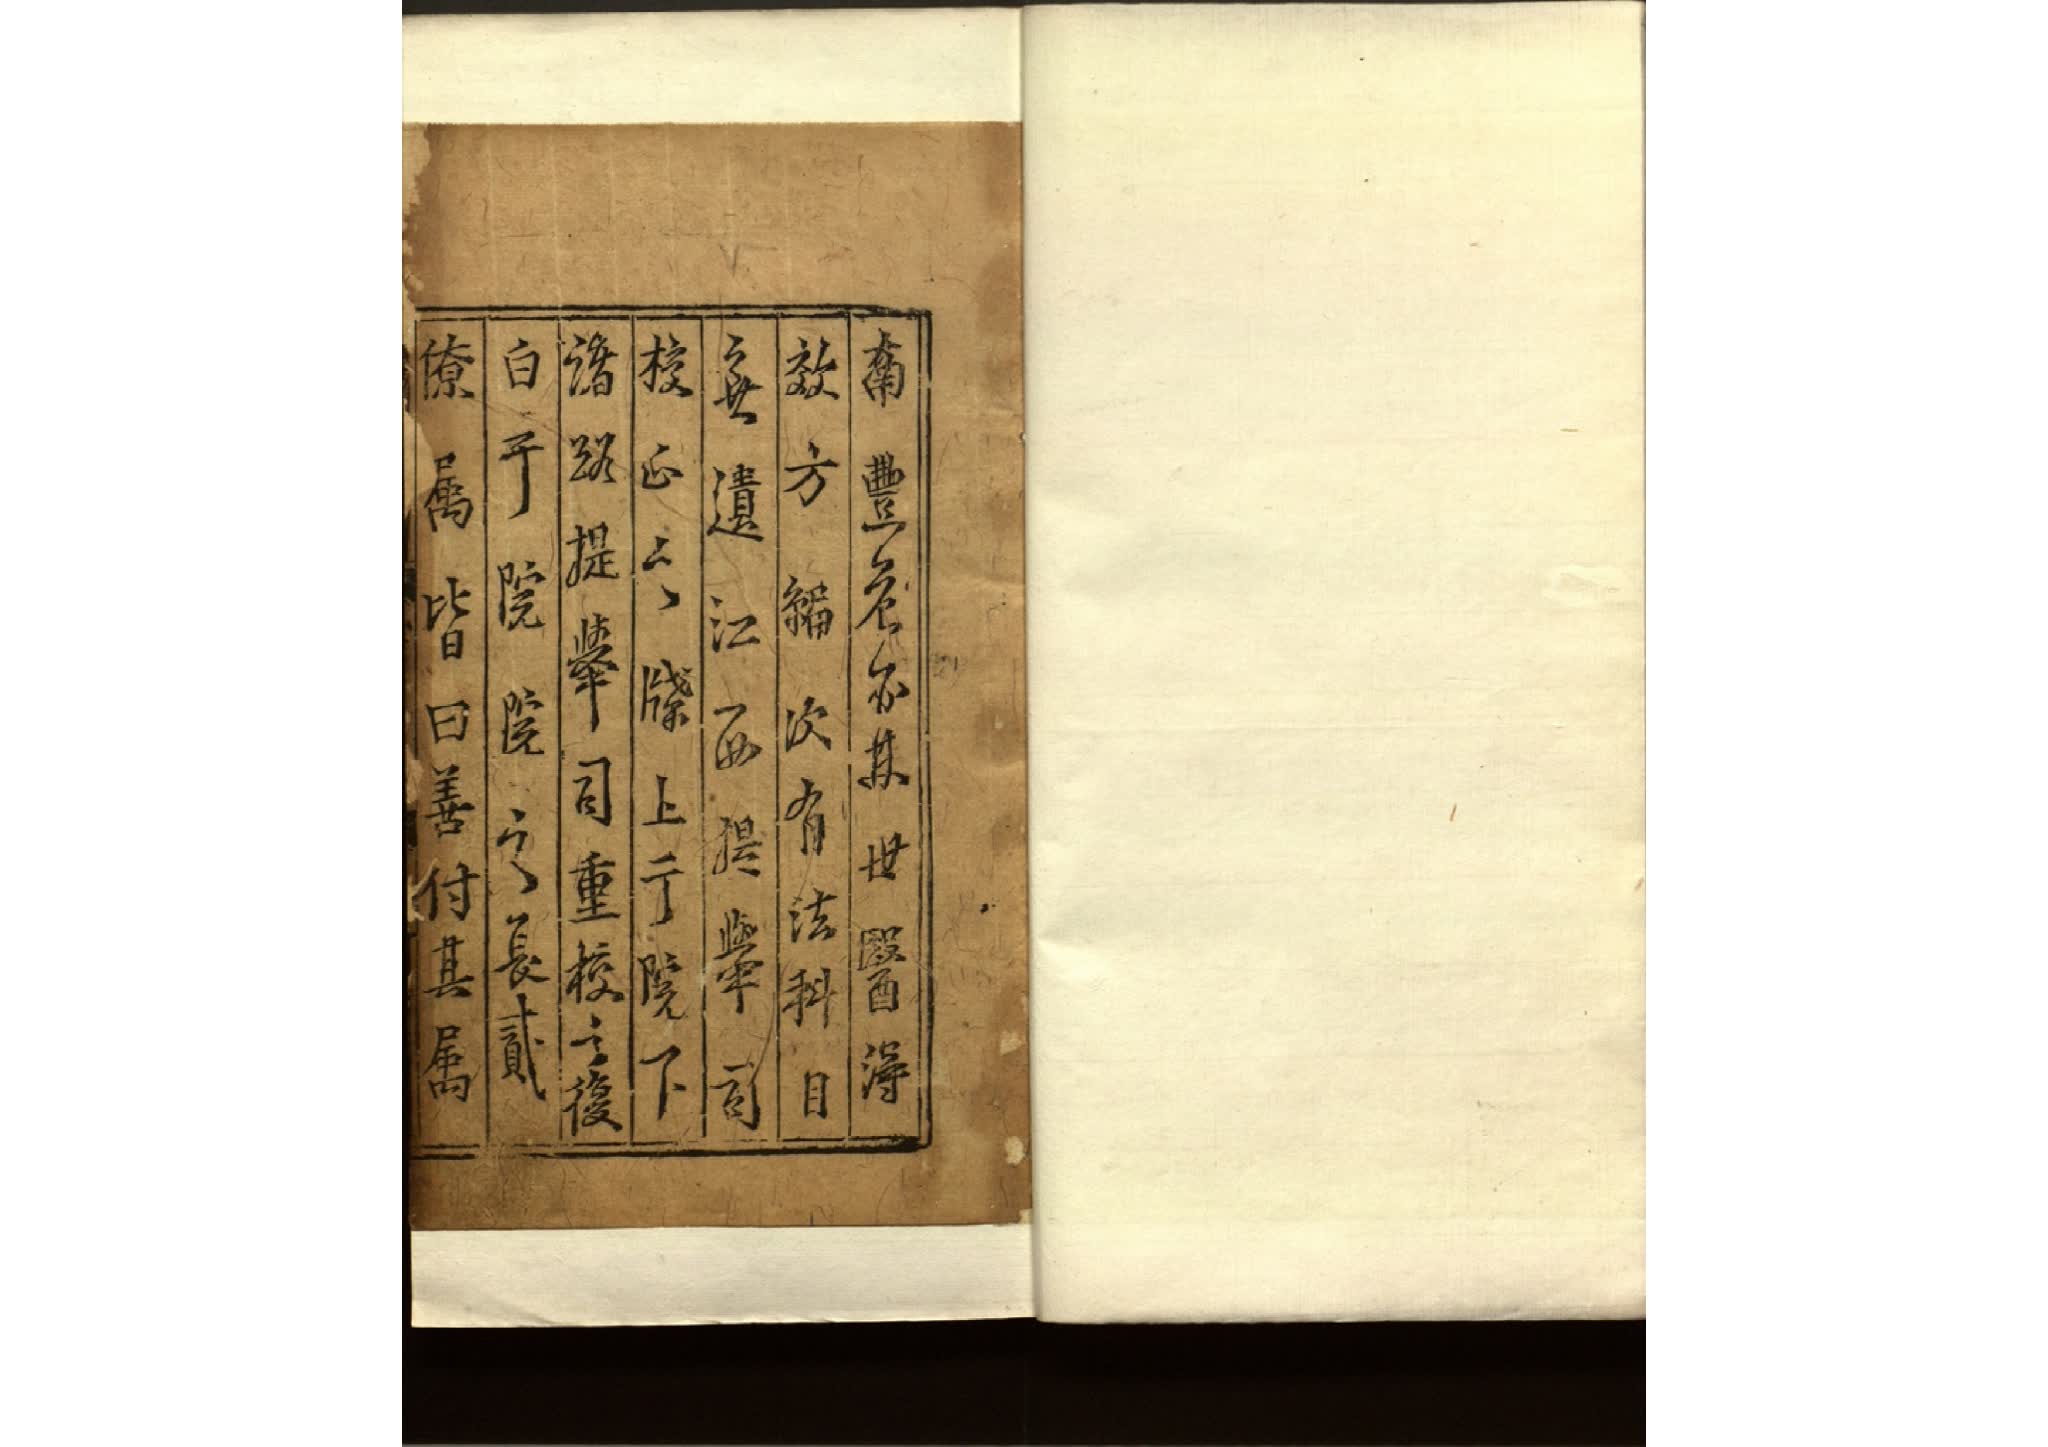 南豐危亦林世醫得
效方編次有法科目
無遺江西提舉司
校正以牒上于院下
諸路提舉司重校之復
白于院院之長貳
僚属皆曰善付其属